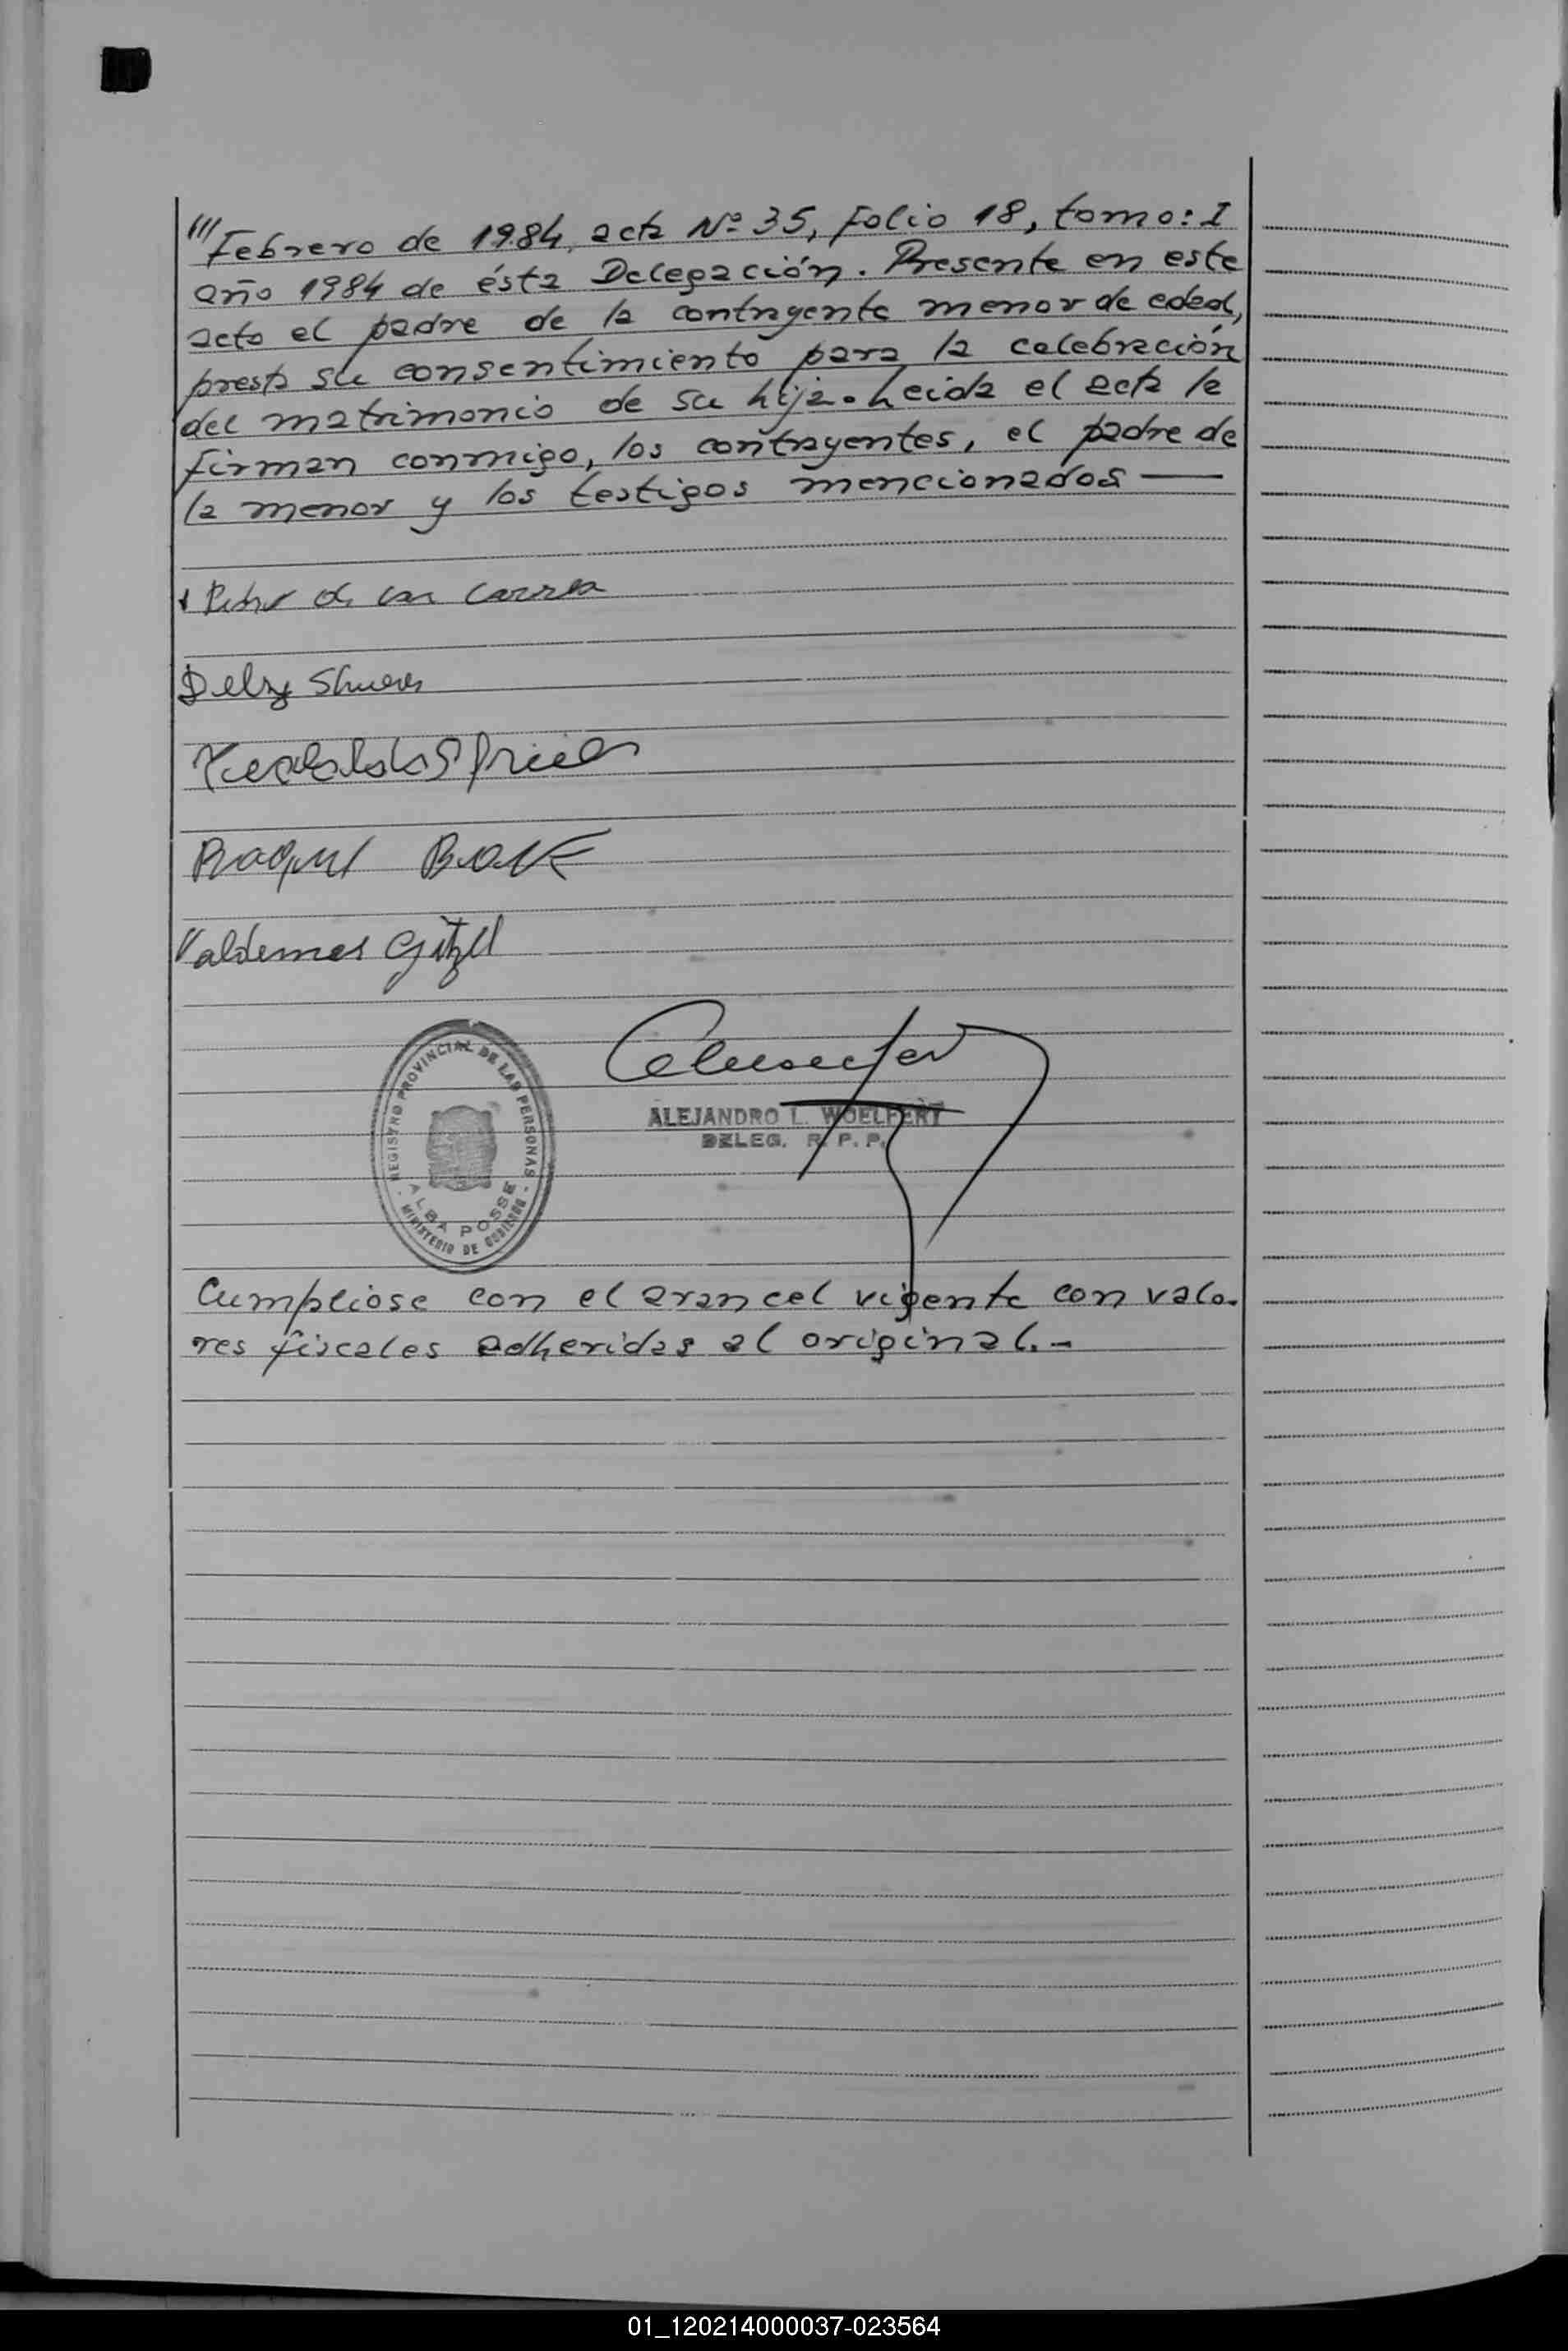 /// Febrero de 1984, acta Nº 35, folio 18, tomo: I
año 1984 de ésta Delegación. Presente en este
acto el padre de la contrayente menor de edad,
presta su consentimiento para la celebración
del matrimonio de su hija. Leida el acta la
firman conmigo, los contrayentes, el padre de
la menor y los testigos mencionados —
Valdemar
REGISTRO PROVINCIAL DE LAS PERSONAS
ALBA POSSE
MINISTERIO DE GOBIERNO
ALEJANDRO L. WOELFERT
DELEG. R. P. P.
Cumpliose con el arancel vigente con valo-
res fiscales adheridas al original.-
01_120214000037-023564